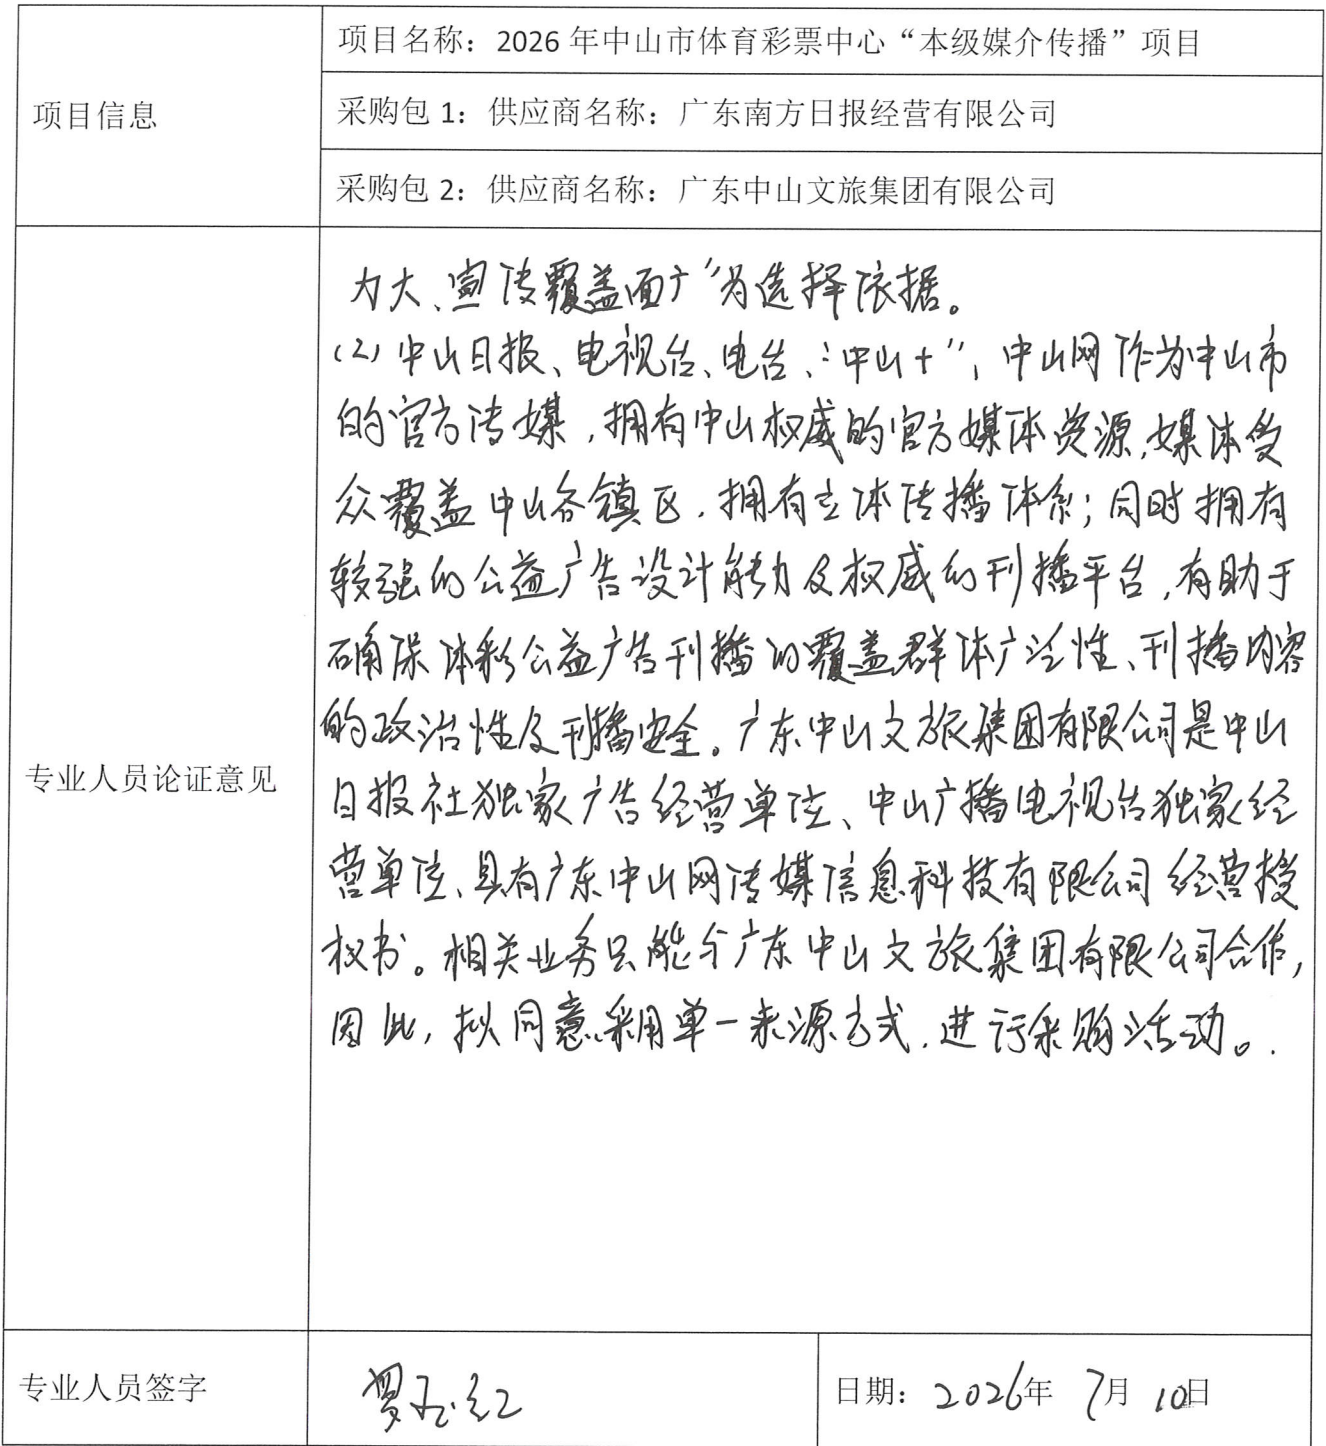 项目信息
项目名称：2026 年中山市体育彩票中心“本级媒介传播”项目
采购包 1：供应商名称：广东南方日报经营有限公司
采购包 2：供应商名称：广东中山文旅集团有限公司
专业人员论证意见
力大、宣传覆盖面广”为选择依据。
(2) 中山日报、电视台、电台、“中山+”、中山网作为中山市
的官方传媒，拥有中山权威的官方媒体资源，媒体受
众覆盖中山各镇区，拥有立体传播体系；同时拥有
较强的公益广告设计能力及权威的刊播平台，有助于
确保体彩公益广告刊播的覆盖群体广泛性、刊播内容
的政治性及刊播安全。广东中山文旅集团有限公司是中山
日报社独家广告经营单位、中山广播电视台独家经
营单位、具有广东中山网传媒信息科技有限公司经营授
权书。相关业务只能与广东中山文旅集团有限公司合作，
因此，拟同意采用单一来源方式，进行采购活动。
专业人员签字
日期：2026年 7月 10日